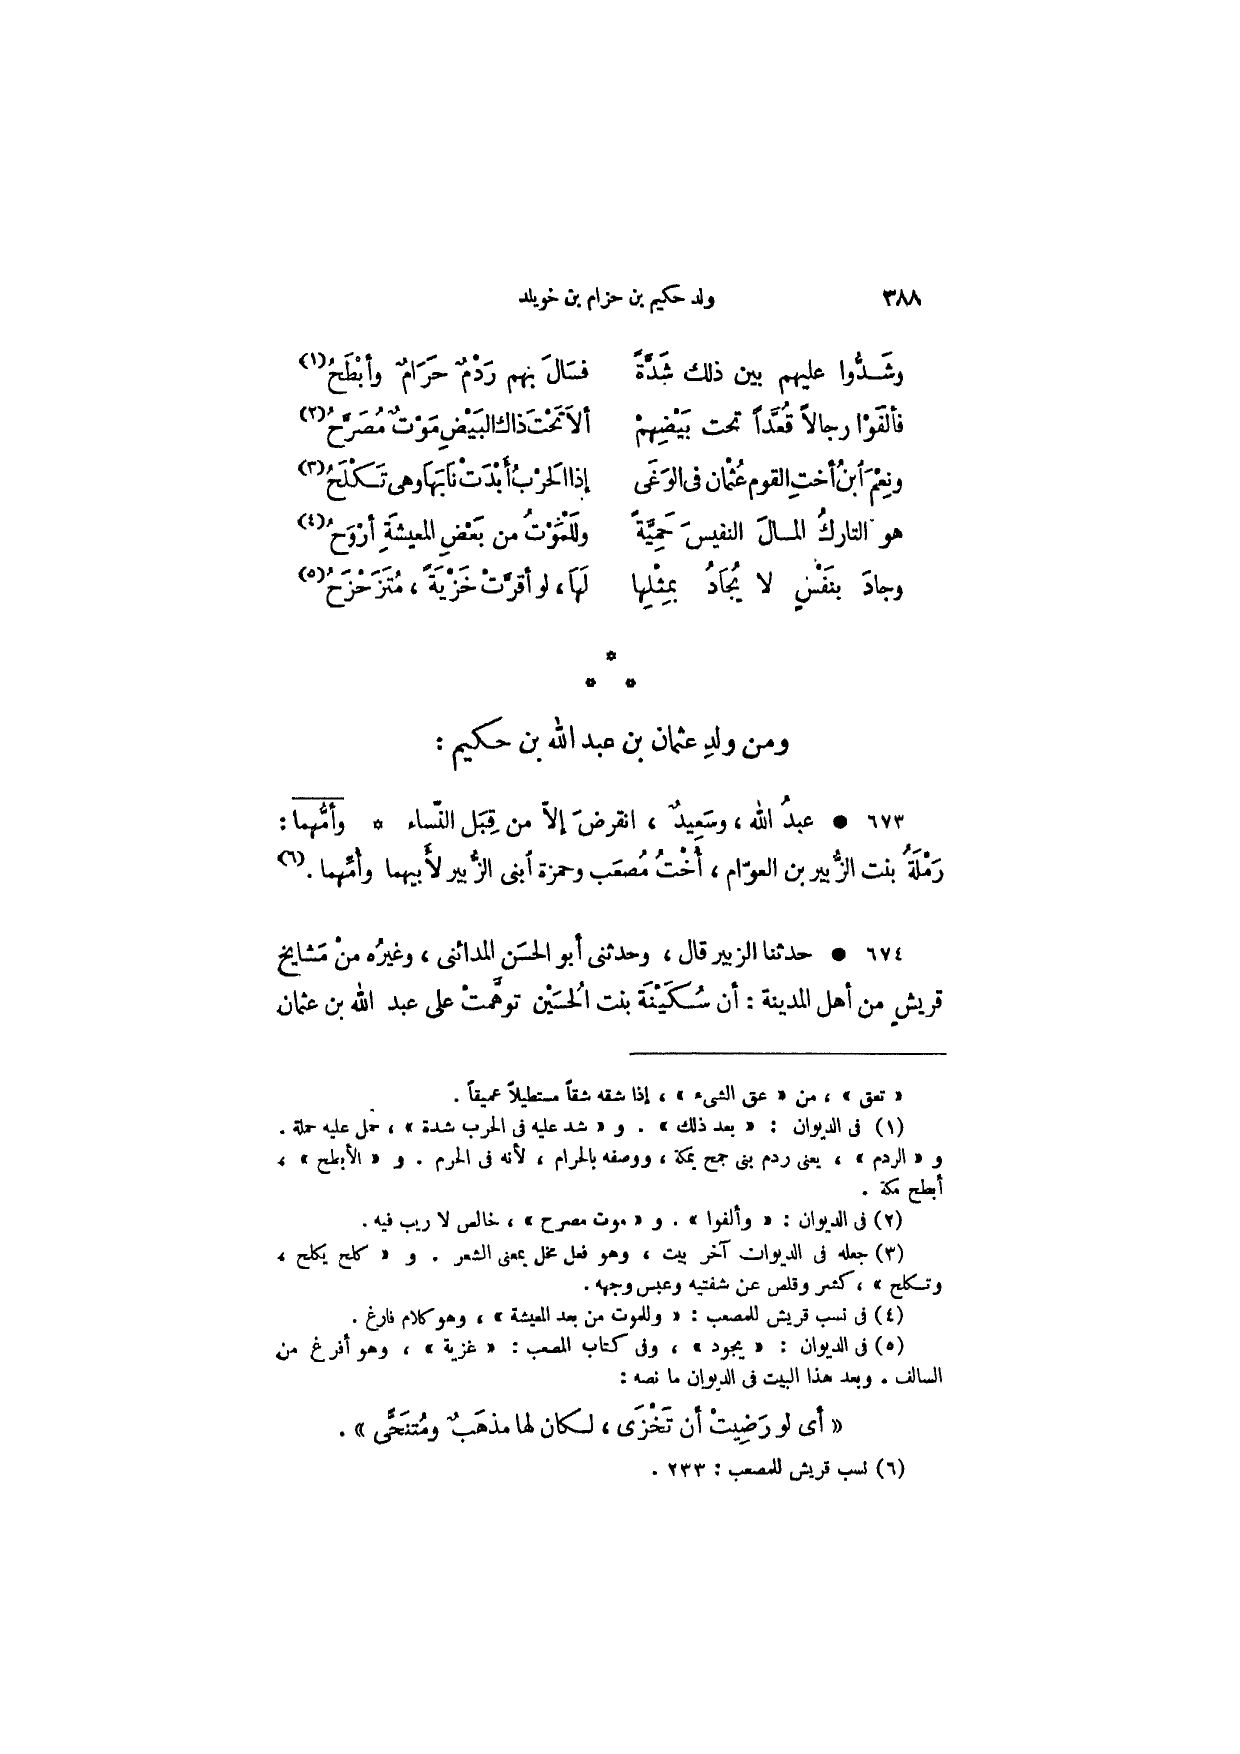 ٣٨٨ ولد حكيم بن حزام بن خويلد
وشَــدُّوا عليهم بين ذلك شَدَّةً فسَالَ بهم رَدْمٌ حَرَامٌ وأبْطَحُ(١)
فألفَوْا رجالاً قُعَّداً تحت بَيْضِهِمْ ألاَ تَحْتَ ذاك البَيْضِ مَوْتٌ مُصَرَّحُ(٢)
ونِعْمَ أبنُ أختِ القوم عُثْمان فى الوَغَى إذا الحَرْبُ أَبْدَتْ نَابَهَا وهى تَـكْلَحُ(٣)
هو التاركُ المـالَ النفيسَ حَمِيَّةً ولَلْمَوْتُ من بَعْضِ المعيشَةِ أرْوَحُ(٤)
وجادَ بنَفْسٍ لا يُجَادُ بمِثْلِها لَهَا، لو أقرَّتْ خَزْيَةً، مُتَزَحْزَحُ(٥)
*
* *
ومن ولدِ عثمان بن عبد الله بن حـكيم :
٦٧٣ ● عبدُ الله ، وسَعِيدٌ ، انقرضَ إلاّ من قِبَل النّساء * وأمُّهما :
رَمْلَةُ بنت الزُّبير بن العوّام ، أُخْتُ مُصعَب وحمزة أبنى الزُّبير لأَبيهما وأمِّهما .(٦)
٦٧٤ ● حدثنا الزبير قال ، وحدثنى أبو الحسَن المدائنى ، وغيرُه منْ مَشايخ
قريشٍ من أهل المدينة : أن سُـكَيْنَة بنت الُحسَيْن توهَّمتْ على عبد الله بن عثمان
« تعق » ، من « عق الشىء » ، إذا شقه شقاً مستطيلاً عميقاً .
(١) فى الديوان : « بعد ذلك » . و « شد عليه فى الحرب شدة » ، حمل عليه حملة .
و « الردم » ، يعنى ردم بنى جمح بمكة ، ووصفه بالحرام ، لأنه فى الحرم . و « الأبطح » ،
أبطح مكة .
(٢) فى الديوان : « وألفوا » . و « موت مصرح » ، خالص لا ريب فيه .
(٣) جعله فى الديوان آخر بيت ، وهو فعل مخل بمعنى الشعر . و « كلح يكلح ،
وتـكلح » ، كشر وقلص عن شفتيه وعبس وجهه .
(٤) فى نسب قريش للمصعب : « وللموت من بعد المعيشة » ، وهو كلام فارغ .
(٥) فى الديوان : « يجود » ، وفى كتاب المصعب : « غزية » ، وهو أفرغ من
السالف . وبعد هذا البيت فى الديوان ما نصه :
« أى لو رَضِيتْ أن تَخْزَى ، لـكان لها مذهَبٌ ومُتنَحَّى » .
(٦) نسب قريش للمصعب : ٢٣٣ .